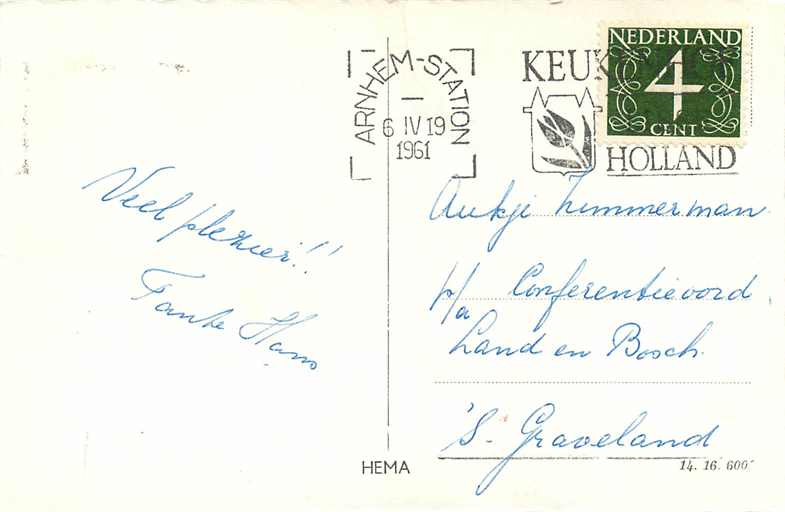 ARNHEM-STATION
6 IV 19
1961
NEDERLAND
4
CENT
HOLLAND
Veel plezier!!
Tante Hans
Aukje Zimmerman
p/a Conferentieoord
Land en Bosch.
's-Graveland
HEMA
14. 16. 600